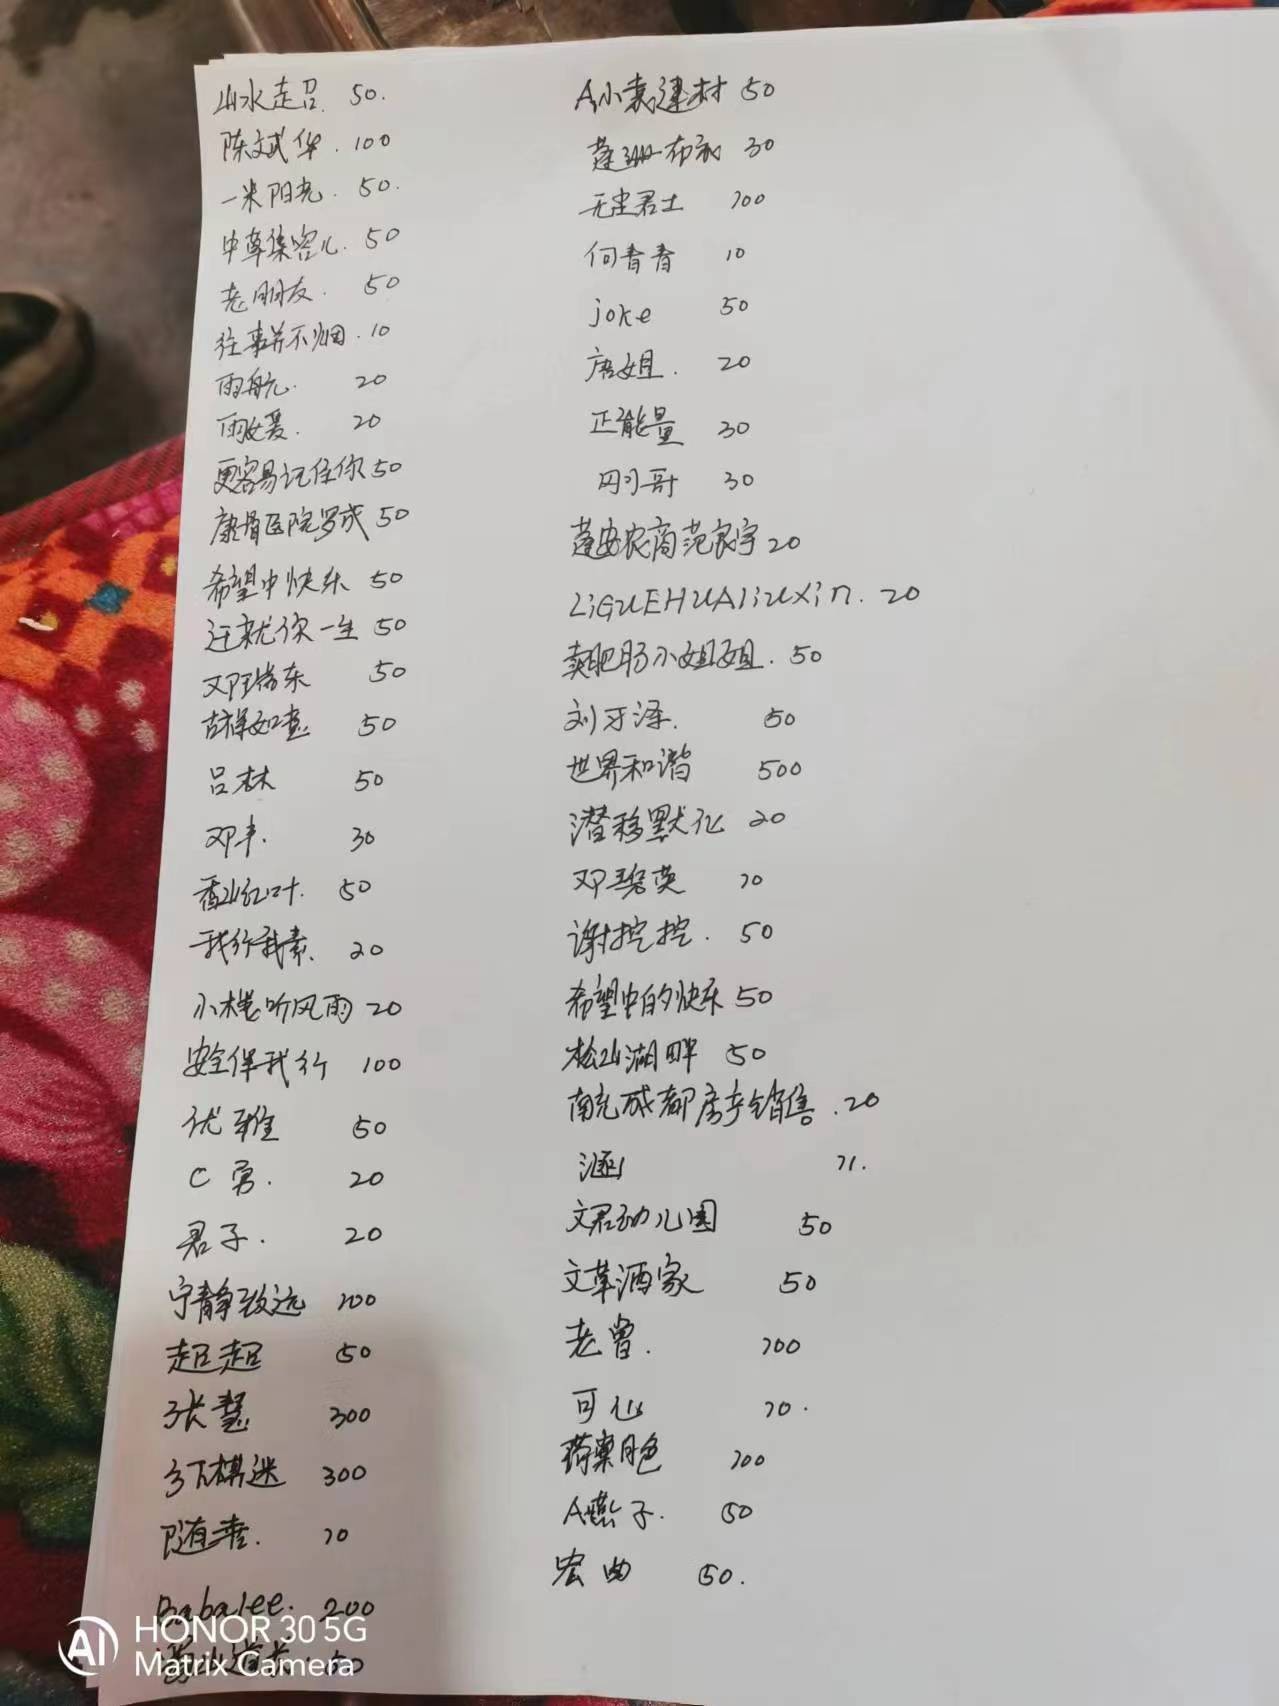 山水走召. 50.
陈斌华. 100
一米阳光. 50.
中草集容儿. 50
老朋友. 50
往事并不烟. 10
雨航. 20
雨媛. 20
更容易记住你 50
康骨医院罗成 50
希望中快乐 50
迁就你一生 50
邓瑞东 50
吉祥如意 50
吕林 50
邓丰. 30
香山红叶. 50
我行我素. 20
小楼听风雨 20
安全伴我行 100
优雅 50
C 勇. 20
君子. 20
宁静致远 200
超超 50
张慧 300
300
随 . 20
Babalee. 200
50
A小袁建材 50
蓬珊布衣 30
无尘君土 200
何青青 10
joke 50
唐姐. 20
正能量 30
刚哥 30
蓬安农商范家宇 20
LiGUEHUAliuxin. 20
卖肥肠小姐姐. 50
刘牙泽. 50
世界和谐 500
潜移默化 20
邓碧英 20
谢控控. 50
希望中的快乐 50
松山湖畔 50
南充成都房产销售. 20
涵 71.
文君幼儿园 50
文革酒家 50
老曾. 200
可心 20.
月色 200
A燕子. 50
宏曲 50.
HONOR 30 5G
Matrix Camera